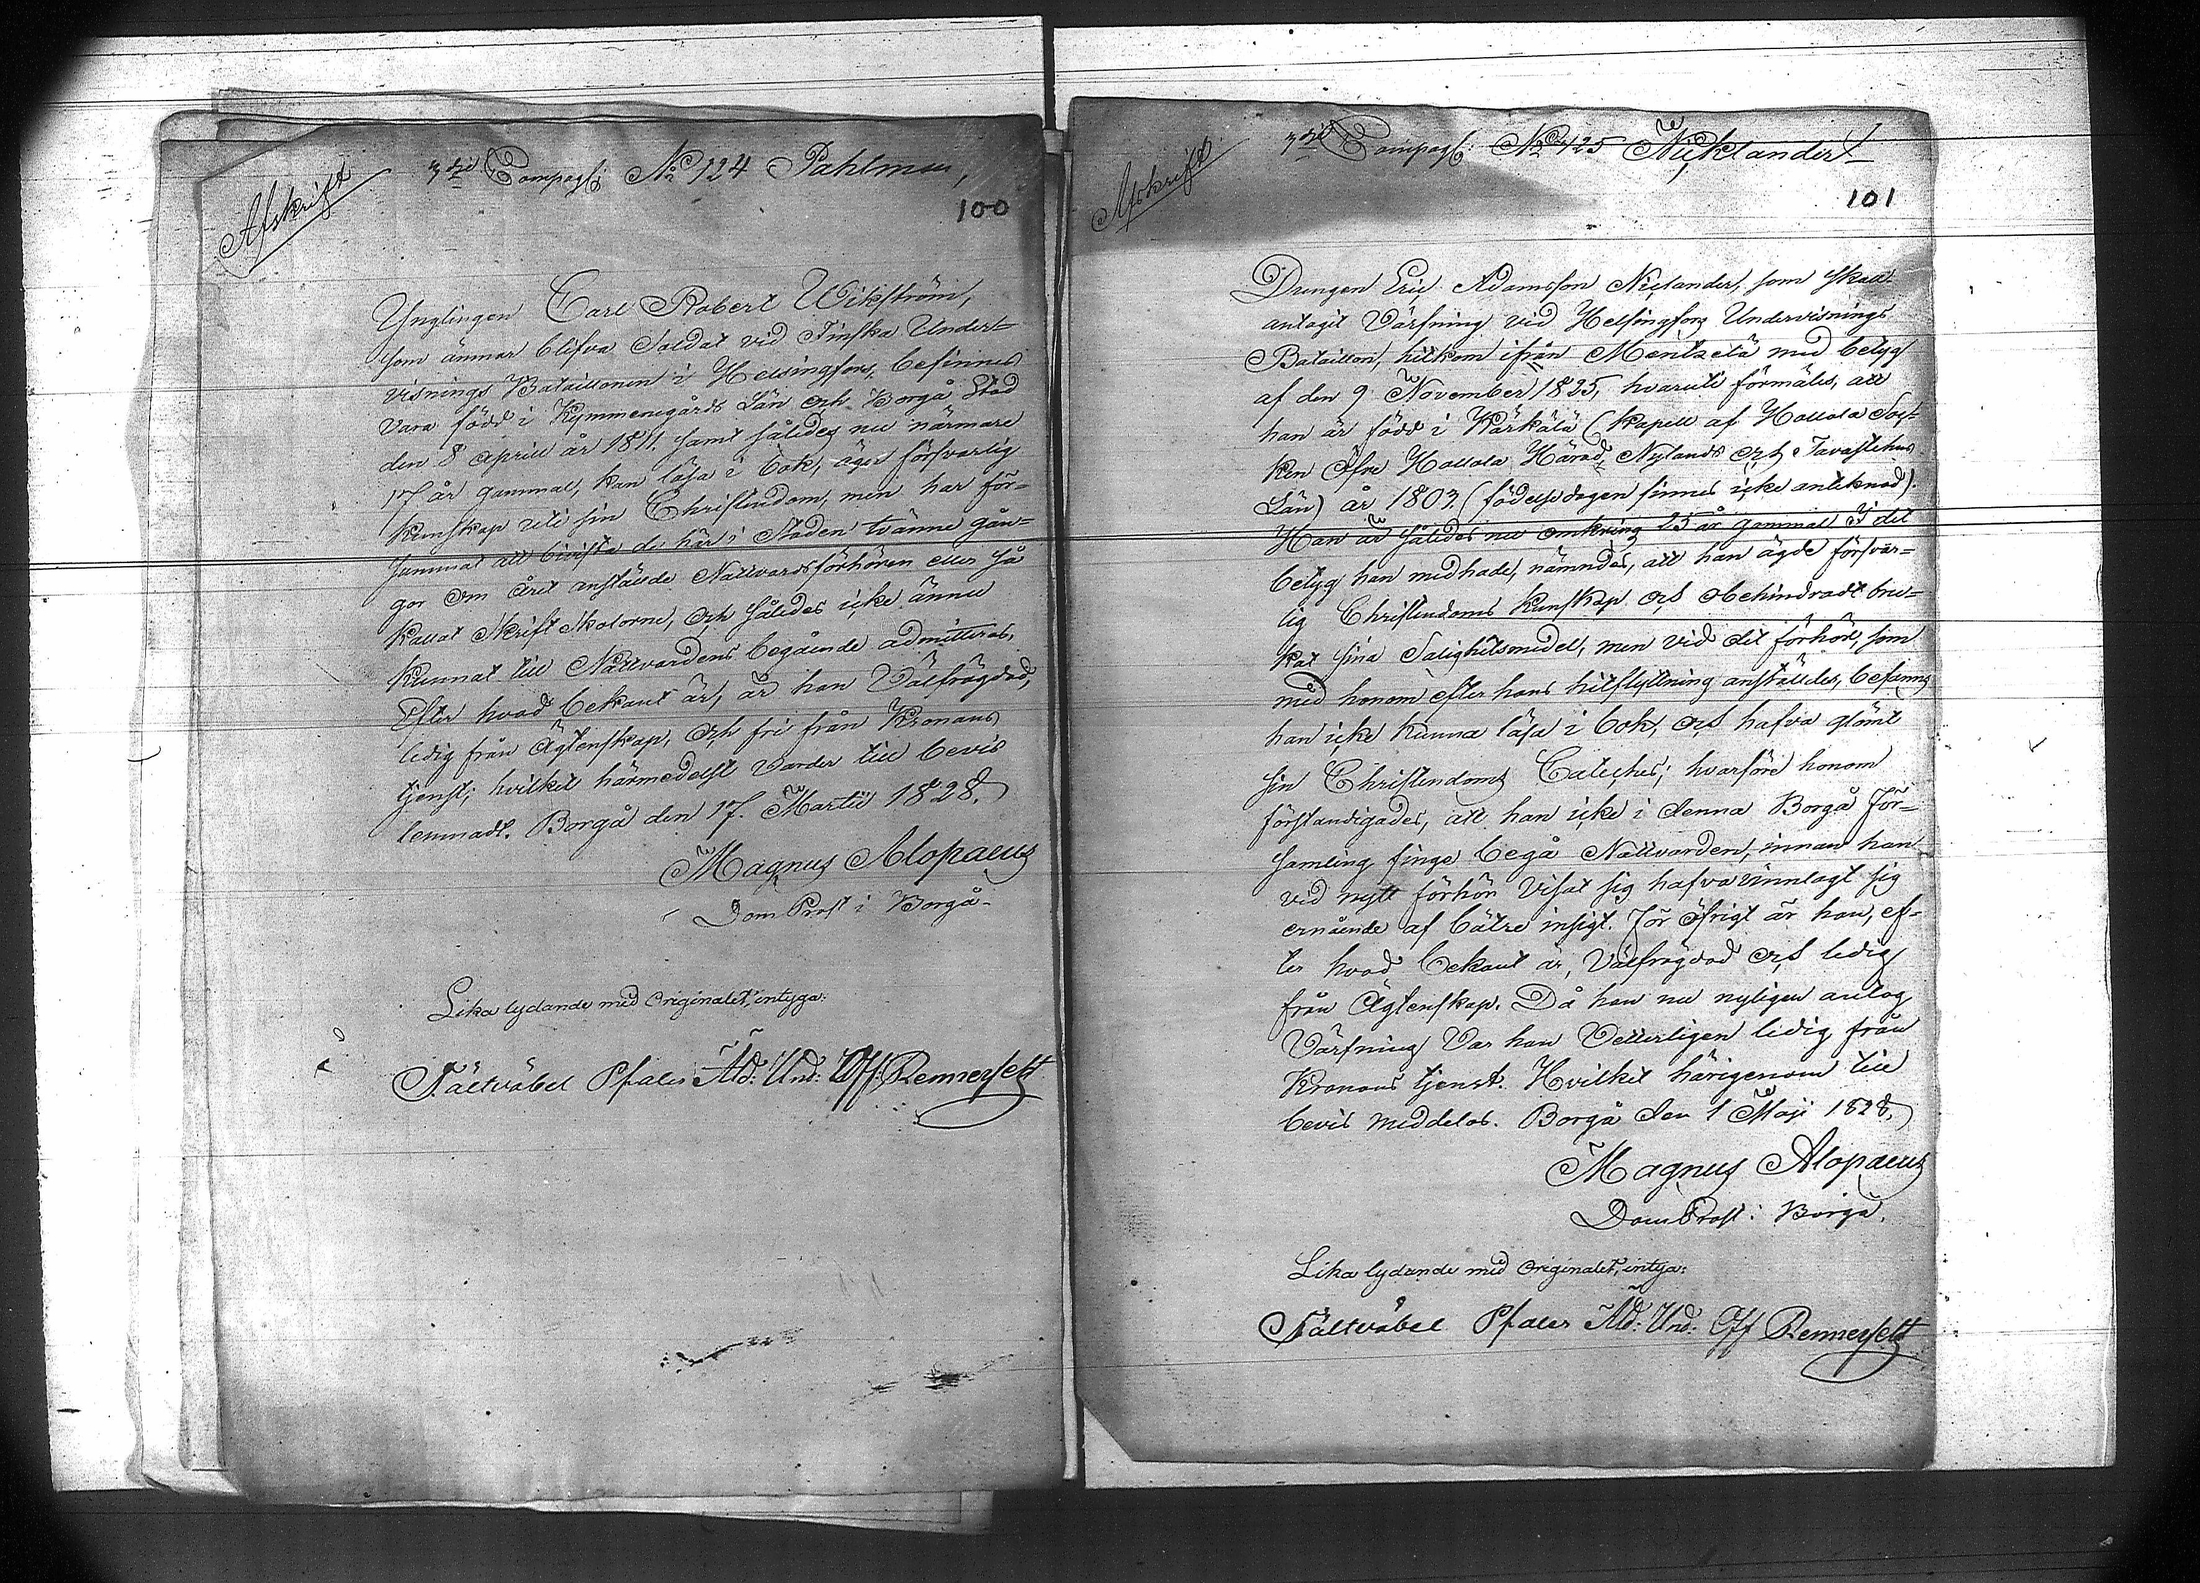 Afskrift
3dje Compagti No 124 Pahlman,
100
Ynglingen Carl Robert Wikström,
som ämnar blifva Soldat vid Finska Under-
visnings Bataillonen i Helsingfors, befinnes
vara född i Kymmenegårds Län och Borgå Stad
den 8 April år 1811. samt således nu närmare
17 år gammal, kan läsa i bok, äger försvarlig
kunskap uti sin Christendom, men har för-
summat att bivista de här i Staden tvänne gån-
gor om året anstälde Nattvardsförhören eller så
kallat Skrift Skolorne, och således icke ännu
kunnat till Nattvardens begående admitteras.
Efter hvad bekant är, är han Välfrägdad,
ledig från Ägtenskap, och fri från Kronans
tjenst; hvilket härmedelst varder till bevis
lemnadt. Borgå den 17. Martii 1828.
Magnus Alopaeus
Dom Prost i Borgå.
Lika lydande med Originalet, intyga:
Fältväbel Pfaler Äld: Und: Off Rennerfelt
Afskrift
3dje Compagti: No 125 Nicklander
101
Drengen Eric Adamsson Niclander, som skall
antagit Värfning vid Helsingfors Undervisnings
Bataillon, hitkom ifrån Mentzelä med betyg
af den 9 November 1825, hvaruti förmäles, att
han är född i Kärkälä (Kapell af Hollola Soc-
ken Öfre Hollola Härad, Nylands och Tavastehus
Län) år 1803. (födelsedagen finnes icke anteknad).
Han är således nu omkring 25 år gammal. I det
betyg han medhade, nämndes, att han ägde försvar-
lig Christendoms kunskap och obehindradt bru-
kat sina Salighetsmedel, men vid det förhör, som
med honom efter hans hitflyttning anstäldes, befanns
han icke kunna läsa i bok, och hafva glömt
sin Christendoms Cateches; hvarföre honom
förständigades, att han icke i denna Borgå För-
samling finge begå Nattvarden, innan han
vid nytt förhör visat sig hafva vinnlagt sig
ernående af bätre insigt. För öfrigt är han, ef-
ter hvad bekant är, Välfrägdad och ledig
från Ägtenskap. Då han nu nyligen antog
Värfning var han Vetterligen ledig från
Kronans tjenst. Hvilket härigenom till
bevis meddelas. Borgå den 1 Maji 1828.
Magnus Alopaeus
Dom Prost i Borgå.
Lika lydande med Originalet, intyga:
Fältväbel Pfaler Äld: Und: Off Rennerfelt